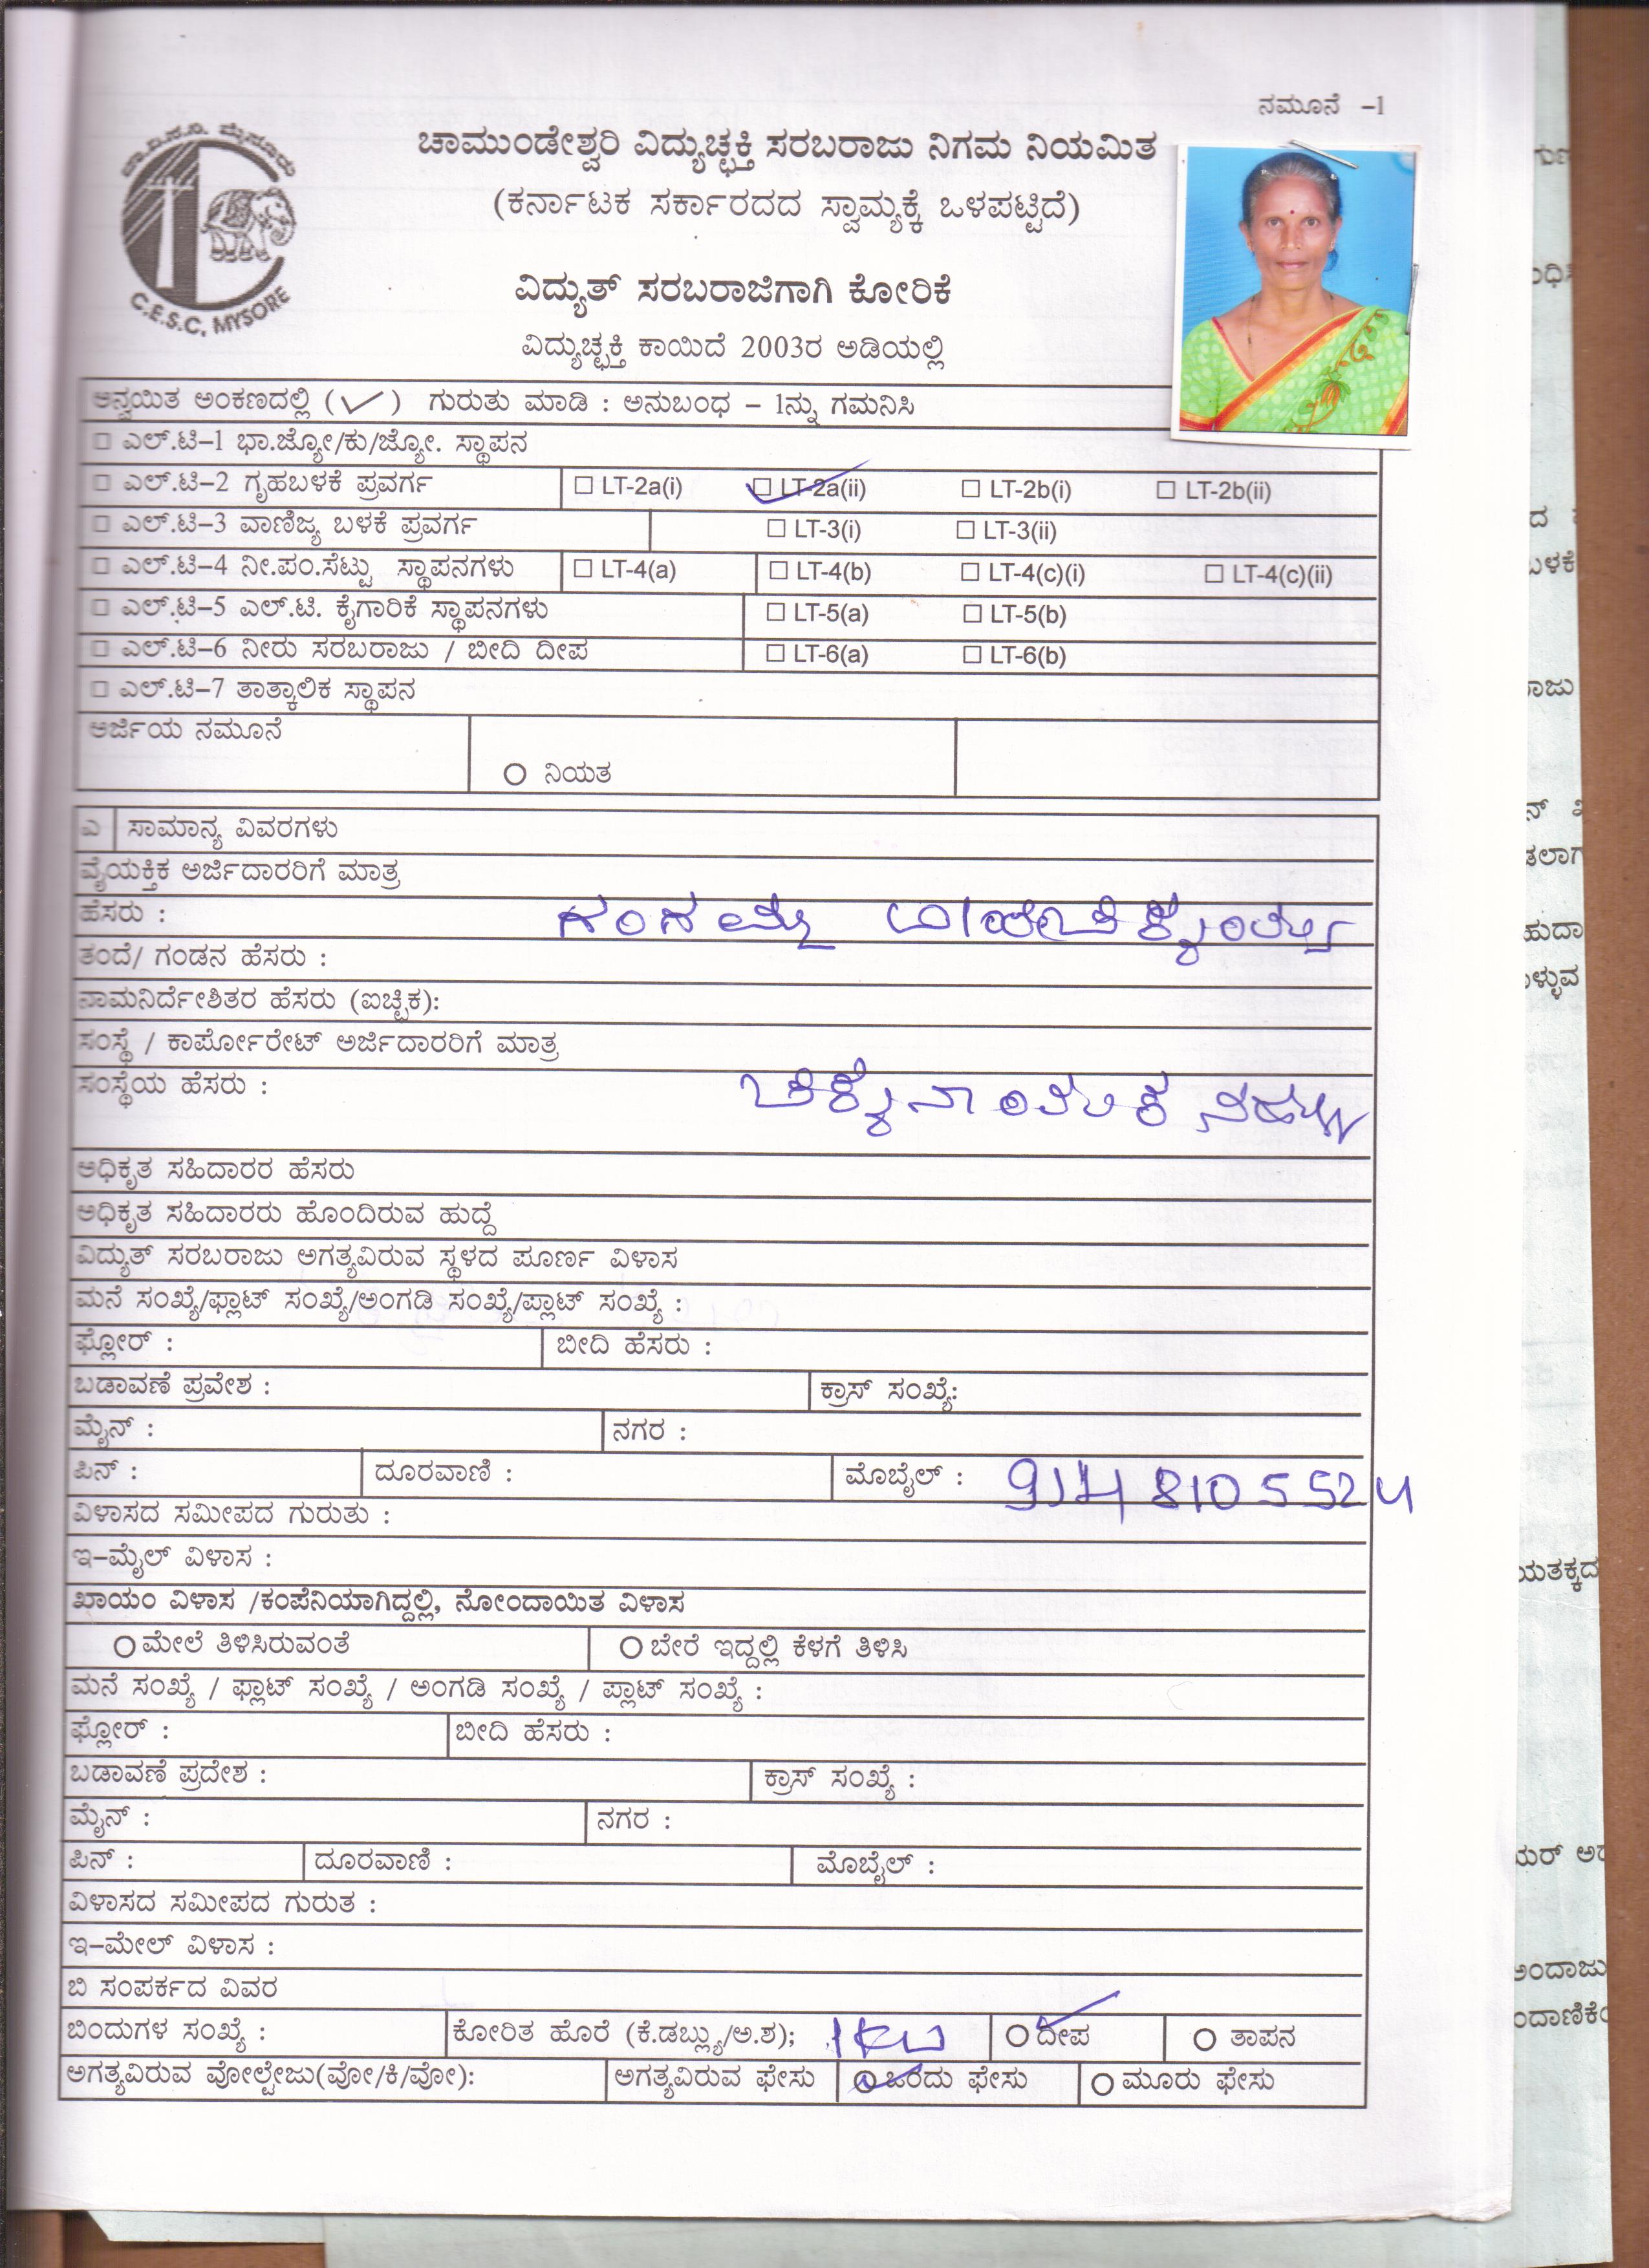 ನಮೂನೆ -1
ಚಾ.ವಿ.ಸ.ನಿ. ಮೈಸೂರು
C.E.S.C, MYSORE
ಚಾಮುಂಡೇಶ್ವರಿ ವಿದ್ಯುಚ್ಛಕ್ತಿ ಸರಬರಾಜು ನಿಗಮ ನಿಯಮಿತ
(ಕರ್ನಾಟಕ ಸರ್ಕಾರದದ ಸ್ವಾಮ್ಯಕ್ಕೆ ಒಳಪಟ್ಟಿದೆ)
ವಿದ್ಯುತ್ ಸರಬರಾಜಿಗಾಗಿ ಕೋರಿಕೆ
ವಿದ್ಯುಚ್ಛಕ್ತಿ ಕಾಯಿದೆ 2003ರ ಅಡಿಯಲ್ಲಿ
ಅನ್ವಯಿತ ಅಂಕಣದಲ್ಲಿ (✓) ಗುರುತು ಮಾಡಿ : ಅನುಬಂಧ – 1ನ್ನು ಗಮನಿಸಿ
□ ಎಲ್.ಟಿ–1 ಭಾ.ಜ್ಯೋ/ಕು/ಜ್ಯೋ. ಸ್ಥಾಪನ
□ ಎಲ್.ಟಿ–2 ಗೃಹಬಳಕೆ ಪ್ರವರ್ಗ □ LT-2a(i) □ LT-2a(ii) □ LT-2b(i) □ LT-2b(ii)
□ ಎಲ್.ಟಿ–3 ವಾಣಿಜ್ಯ ಬಳಕೆ ಪ್ರವರ್ಗ □ LT-3(i) □ LT-3(ii)
□ ಎಲ್.ಟಿ–4 ನೀ.ಪಂ.ಸೆಟ್ಟು ಸ್ಥಾಪನಗಳು □ LT-4(a) □ LT-4(b) □ LT-4(c)(i) □ LT-4(c)(ii)
□ ಎಲ್.ಟಿ–5 ಎಲ್.ಟಿ. ಕೈಗಾರಿಕೆ ಸ್ಥಾಪನಗಳು □ LT-5(a) □ LT-5(b)
□ ಎಲ್.ಟಿ–6 ನೀರು ಸರಬರಾಜು / ಬೀದಿ ದೀಪ □ LT-6(a) □ LT-6(b)
□ ಎಲ್.ಟಿ–7 ತಾತ್ಕಾಲಿಕ ಸ್ಥಾಪನ
ಅರ್ಜಿಯ ನಮೂನೆ
○ ನಿಯತ
ಎ ಸಾಮಾನ್ಯ ವಿವರಗಳು
ವೈಯಕ್ತಿಕ ಅರ್ಜಿದಾರರಿಗೆ ಮಾತ್ರ
ಹೆಸರು :
ತಂದೆ/ ಗಂಡನ ಹೆಸರು :
ನಾಮನಿರ್ದೇಶಿತರ ಹೆಸರು (ಐಚ್ಛಿಕ):
ಸಂಸ್ಥೆ / ಕಾರ್ಪೋರೇಟ್ ಅರ್ಜಿದಾರರಿಗೆ ಮಾತ್ರ
ಸಂಸ್ಥೆಯ ಹೆಸರು :
ಅಧಿಕೃತ ಸಹಿದಾರರ ಹೆಸರು
ಅಧಿಕೃತ ಸಹಿದಾರರು ಹೊಂದಿರುವ ಹುದ್ದೆ
ವಿದ್ಯುತ್ ಸರಬರಾಜು ಅಗತ್ಯವಿರುವ ಸ್ಥಳದ ಪೂರ್ಣ ವಿಳಾಸ
ಮನೆ ಸಂಖ್ಯೆ/ಫ್ಲಾಟ್ ಸಂಖ್ಯೆ/ಅಂಗಡಿ ಸಂಖ್ಯೆ/ಪ್ಲಾಟ್ ಸಂಖ್ಯೆ :
ಫ್ಲೋರ್ : ಬೀದಿ ಹೆಸರು :
ಬಡಾವಣೆ ಪ್ರವೇಶ : ಕ್ರಾಸ್ ಸಂಖ್ಯೆ:
ಮೈನ್ : ನಗರ :
ಪಿನ್ : ದೂರವಾಣಿ : ಮೊಬೈಲ್ : 9148105524
ವಿಳಾಸದ ಸಮೀಪದ ಗುರುತು :
ಇ–ಮೈಲ್ ವಿಳಾಸ :
ಖಾಯಂ ವಿಳಾಸ /ಕಂಪೆನಿಯಾಗಿದ್ದಲ್ಲಿ, ನೋಂದಾಯಿತ ವಿಳಾಸ
○ ಮೇಲೆ ತಿಳಿಸಿರುವಂತೆ ○ ಬೇರೆ ಇದ್ದಲ್ಲಿ ಕೆಳಗೆ ತಿಳಿಸಿ
ಮನೆ ಸಂಖ್ಯೆ / ಫ್ಲಾಟ್ ಸಂಖ್ಯೆ / ಅಂಗಡಿ ಸಂಖ್ಯೆ / ಪ್ಲಾಟ್ ಸಂಖ್ಯೆ :
ಫ್ಲೋರ್ : ಬೀದಿ ಹೆಸರು :
ಬಡಾವಣೆ ಪ್ರದೇಶ : ಕ್ರಾಸ್ ಸಂಖ್ಯೆ :
ಮೈನ್ : ನಗರ :
ಪಿನ್ : ದೂರವಾಣಿ : ಮೊಬೈಲ್ :
ವಿಳಾಸದ ಸಮೀಪದ ಗುರುತ :
ಇ–ಮೇಲ್ ವಿಳಾಸ :
ಬಿ ಸಂಪರ್ಕದ ವಿವರ
ಬಿಂದುಗಳ ಸಂಖ್ಯೆ : ಕೋರಿತ ಹೊರೆ (ಕೆ.ಡಬ್ಲ್ಯು/ಅ.ಶ); 1KW ○ ದೀಪ ○ ತಾಪನ
ಅಗತ್ಯವಿರುವ ವೋಲ್ಟೇಜು(ವೋ/ಕಿ/ವೋ): ಅಗತ್ಯವಿರುವ ಫೇಸು ○ ಒಂದು ಫೇಸು ○ ಮೂರು ಫೇಸು